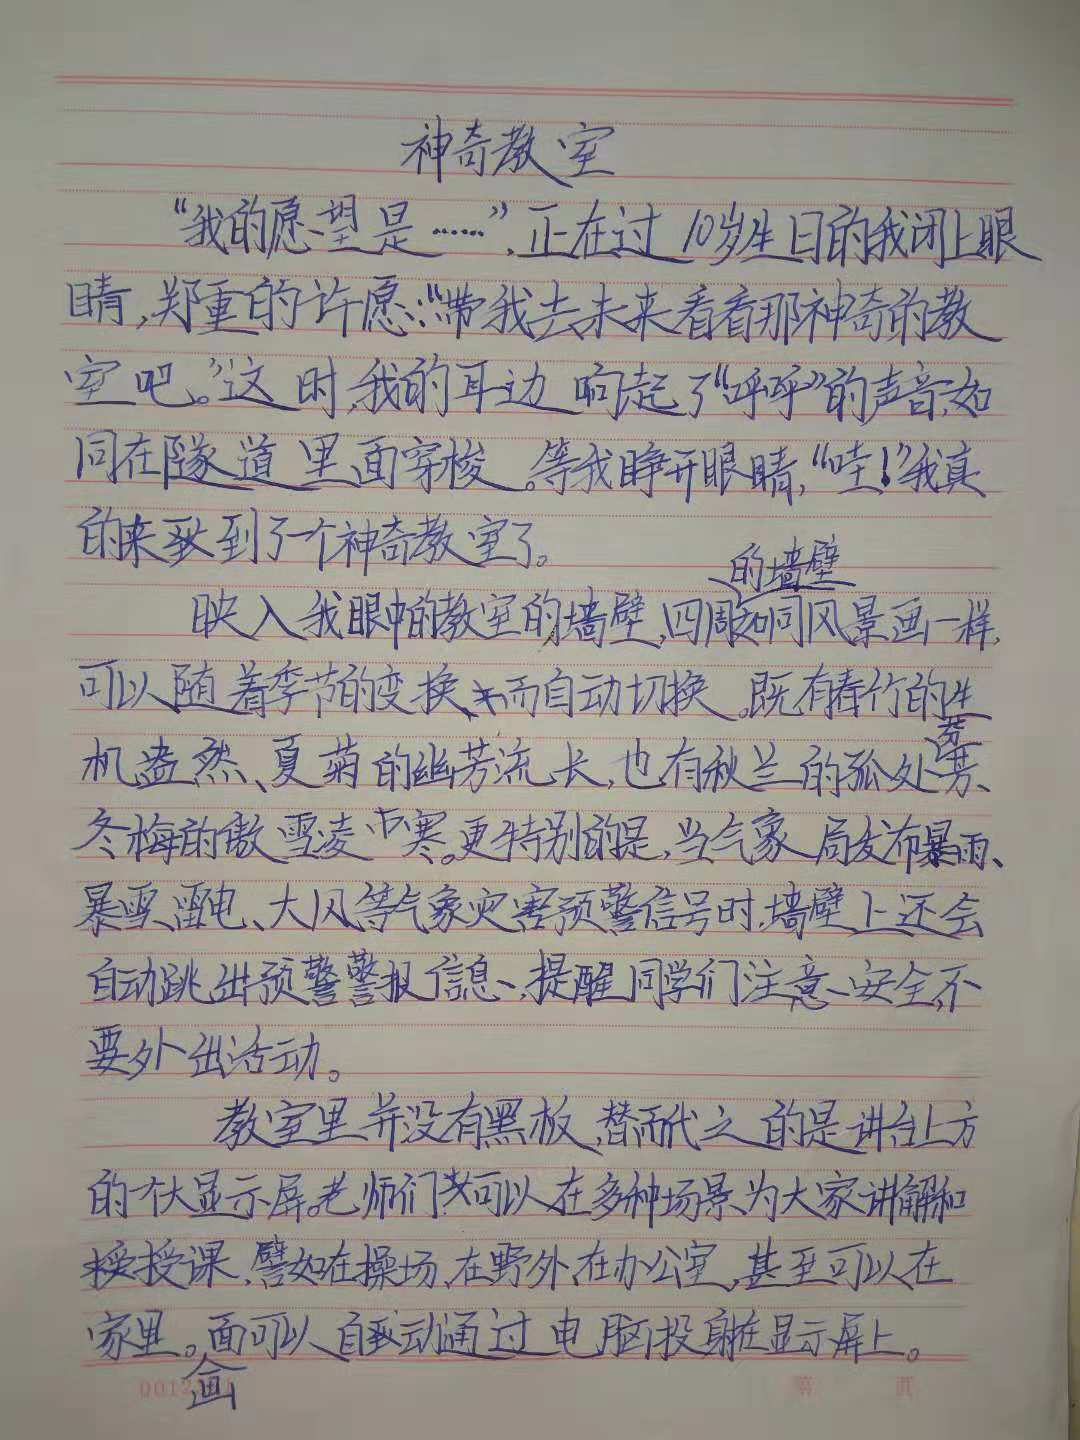 神奇教室
“我的愿望是……”,正在过10岁生日的我闭上眼
睛,郑重的许愿:“带我去未来看看那神奇的教
室吧。”这时,我的耳边响起了“呼呼”的声音,如
同在隧道里面穿梭。等我睁开眼睛,“哇!”我真
的来到了一个神奇教室了。
的墙壁
映入我眼中的教室的墙壁,四周如同风景画一样,
可以随着季节的变换、而自动切换。既有春竹的生
机盎然、夏菊的幽芳流长,也有秋兰的孤处
芳、
冬梅的傲雪凌寒。更特别的是,当气象局发布暴雨、
暴雪、雷电、大风等气象灾害预警信号时,墙壁上还会
自动跳出预警警报信息,提醒同学们注意安全,不
要外出活动。
教室里并没有黑板,替而代之的是讲台上方
的一个大显示屏。老师们可以在多种场景为大家讲解和
授课,譬如在操场、在野外、在办公室,甚至可以在
家里。画面可以自动通过电脑投射在显示屏上。
0012
第 页